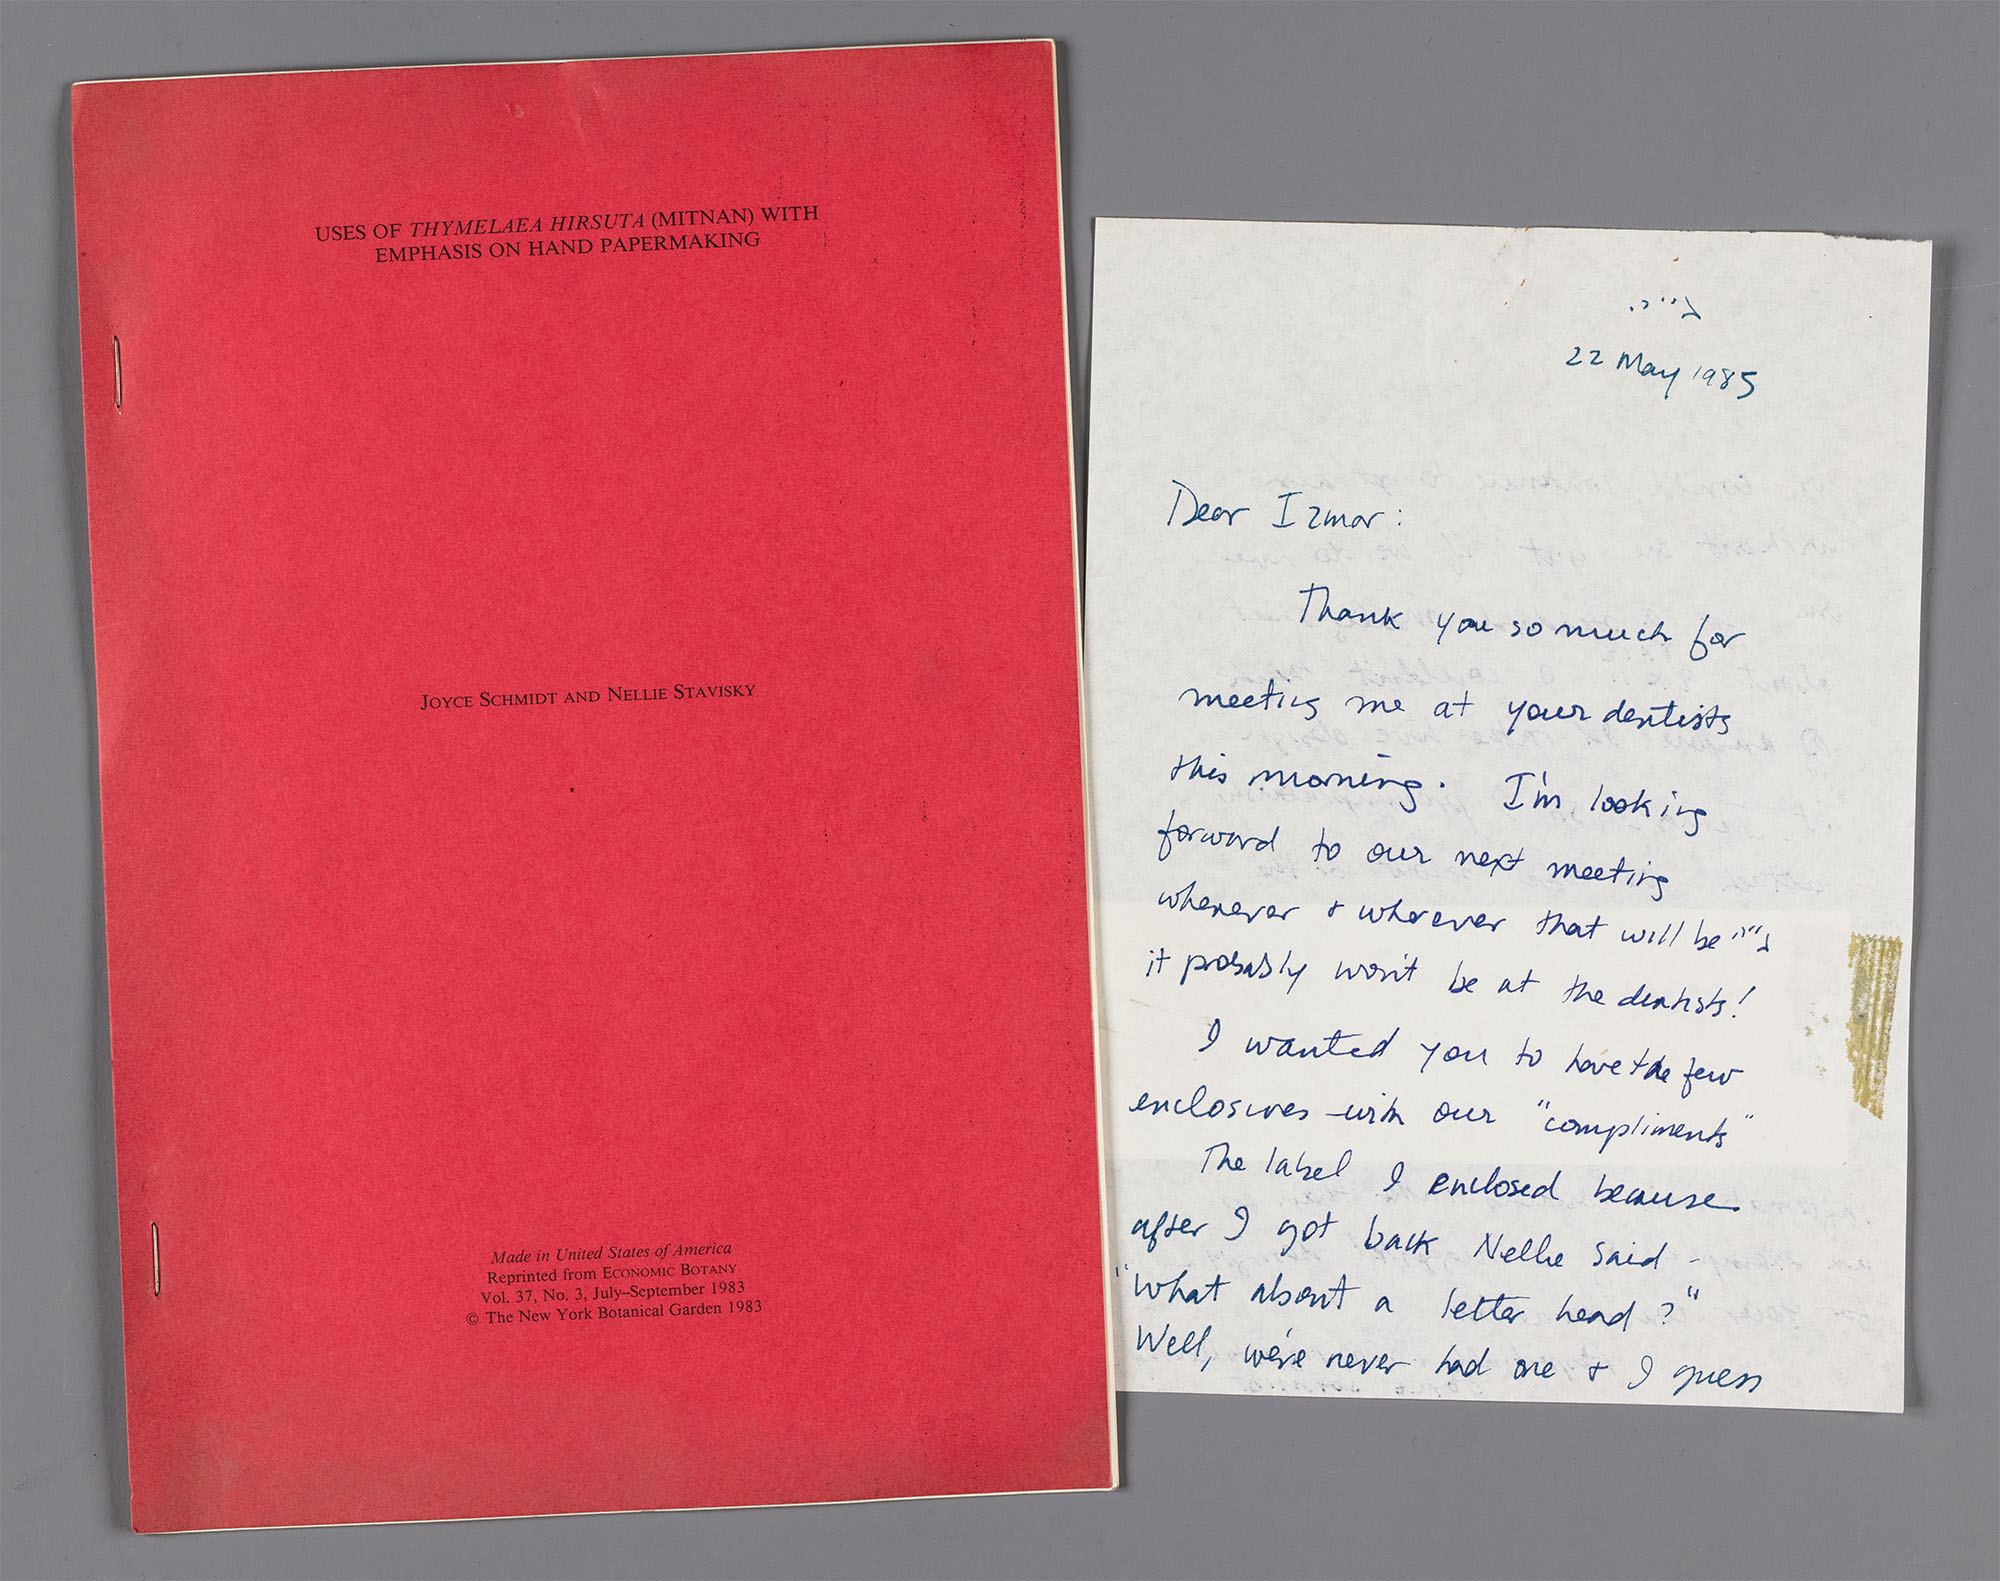 USES OF THYMELAEA HIRSUTA (MITNAN) WITH
EMPHASIS ON HAND PAPERMAKING
JOYCE SCHMIDT AND NELLIE STAVISKY
Made in United States of America
Reprinted from ECONOMIC BOTANY
Vol. 37, No. 3, July–September 1983
© The New York Botanical Garden 1983
22 May 1985
Dear Izmar:
Thank you so much for
meeting me at your dentists
this morning. I'm looking
forward to our next meeting
whenever + wherever that will be
it probably won't be at the dentists!
I wanted you to have the few
enclosures with our "compliments"
The label I enclosed because
after I got back Nellie said –
"What about a letter head?"
Well, we've never had one + I guess